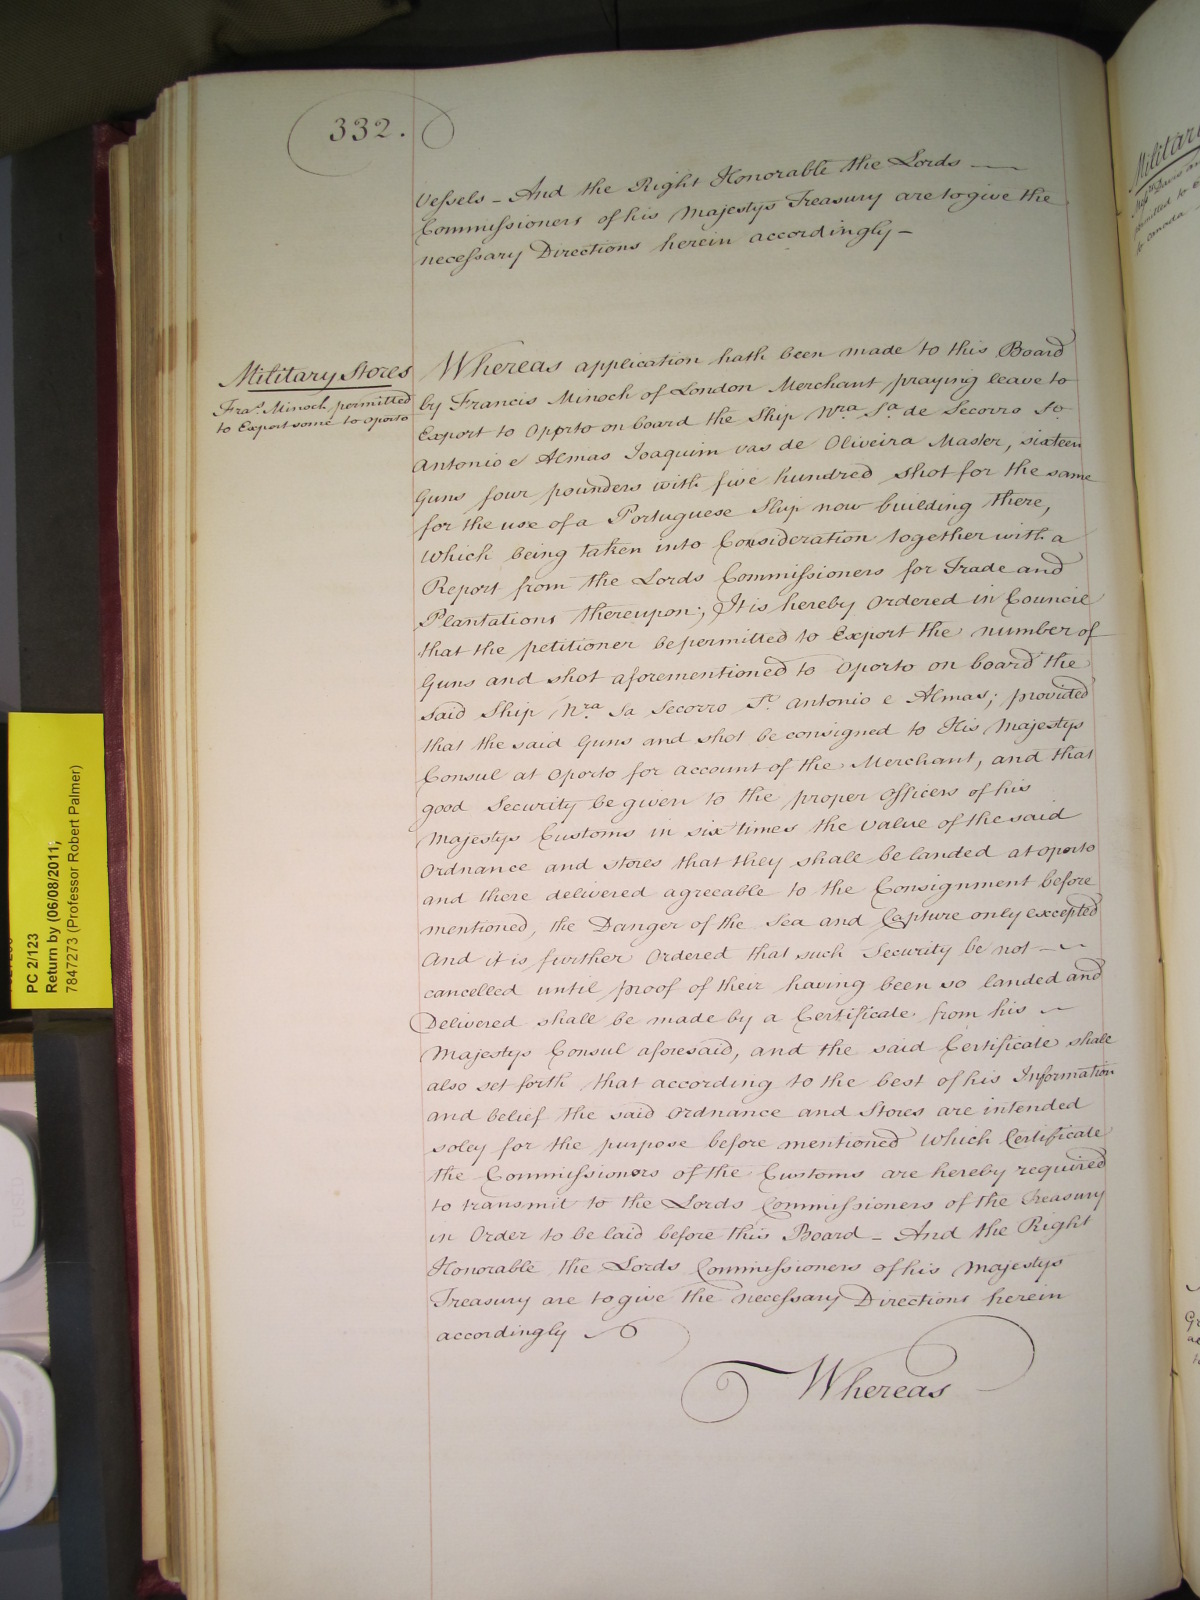 332.
Vessels – And the Right Honorable the Lords —
Commissioners of his Majestys Treasury are to give the
necessary Directions herein accordingly –
Military Stores
Fras. Minoch permitted
to Export some to Oporto
Whereas application hath been made to this Board
by Francis Minoch of London Merchant praying leave to
Export to Oporto on board the Ship Nra. Sa. de Secorro So
Antonio e Almas Joaquim vas de Oliveira Master, sixteen
Guns four pounders with five hundred shot for the same
for the use of a Portuguese Ship now building there,
Which being taken into Consideration together with a
Report from the Lords Commissioners for Trade and
Plantations thereupon; It is hereby Ordered in Council
that the petitioner be permitted to Export the number of
Guns and shot aforementioned to Oporto on board the
said Ship Nra Sa Secorro So Antonio e Almas; provided
that the said Guns and shot be consigned to His Majestys
Consul at Oporto for account of the Merchant, and that
good Security be given to the proper Officers of his
Majestys Customs in six times the value of the said
Ordnance and stores that they shall be landed at Oporto
and there delivered agreeable to the Consignment before
mentioned, the Danger of the Sea and Capture only excepted
And it is further Ordered that such Security be not —
cancelled until proof of their having been so landed and
Delivered shall be made by a Certificate from his —
Majestys Consul aforesaid, and the said Certificate shall
also set forth that according to the best of his Information
and belief the said Ordnance and Stores are intended
soley for the purpose before mentioned Which Certificate
the Commissioners of the Customs are hereby required
to transmit to the Lords Commissioners of the Treasury
in Order to be laid before this Board – And the Right
Honorable the Lords Commissioners of his Majestys
Treasury are to give the necessary Directions herein
accordingly
Whereas
PC 2/123
Return by (06/08/2011;
7847273 (Professor Robert Palmer)
Military
to Canada